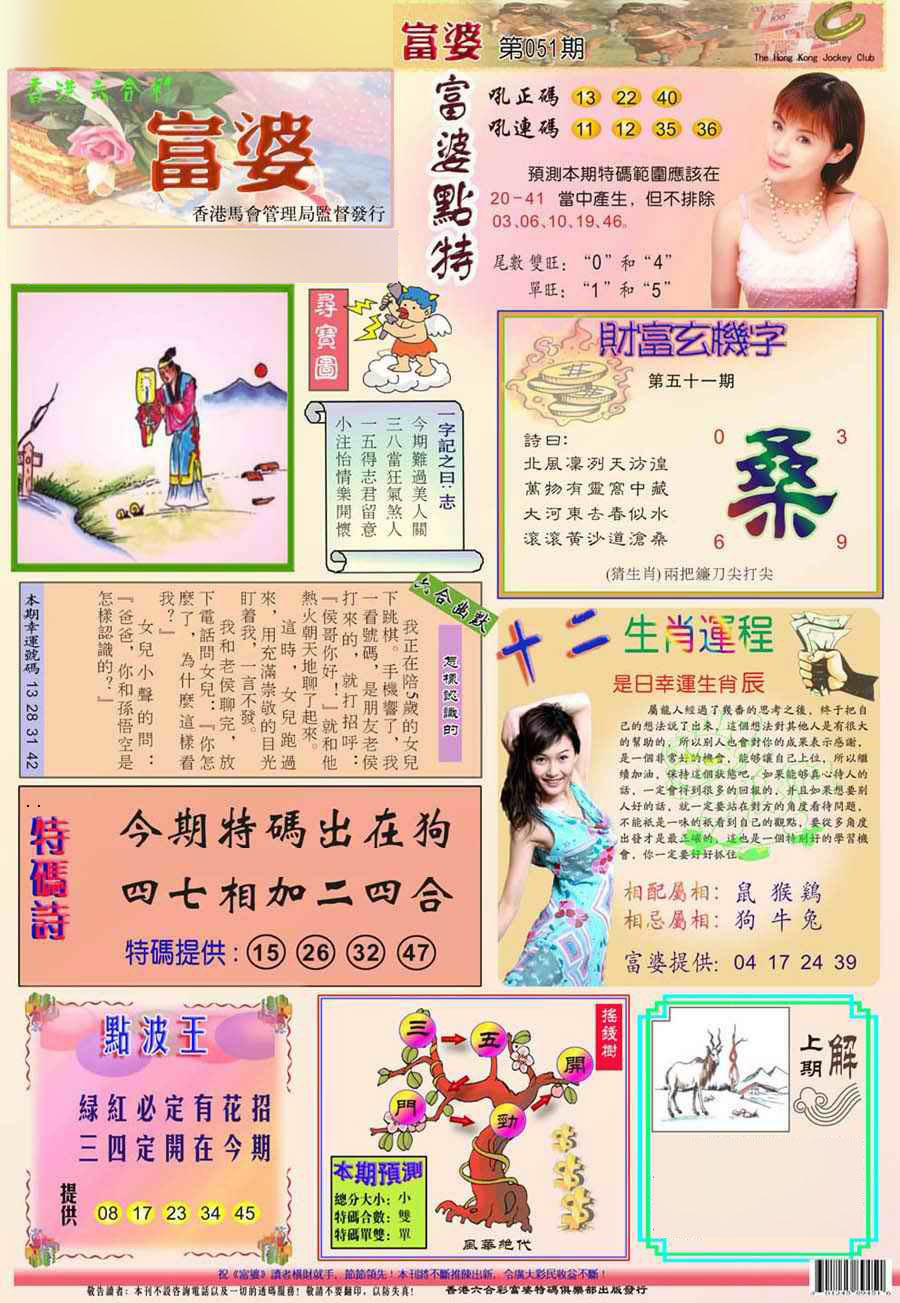 富婆 第051期
The Hong Kong Jockey Club
香港六合彩
富婆
香港馬會管理局監督發行
富婆點特
吼正碼 13 22 40
吼連碼 11 12 35 36
預測本期特碼範圍應該在
20-41 當中產生，但不排除
03、06、10、19、46。
尾數雙旺：“0”和“4”
單旺：“1”和“5”
尋寶圖
一字記之曰：志
今期難過美人關
三八當狂氣煞人
一五得志君留意
小注怡情樂開懷
財富玄機字
第五十一期
詩曰：
北風凜冽天彷徨
萬物有靈窩中藏
大河東去春似水
滾滾黃沙道滄桑
0 3
桑
6 9
(猜生肖)兩把鐮刀尖打尖
六合幽默
怎樣認識的
我正在陪5歲的女兒
下跳棋。手機響了，我
一看號碼，是朋友老侯
打來的，就打招呼：
『侯哥你好！』就和他
熱火朝天地聊了起來。
這時，女兒跑過
來，用充滿崇敬的目光
盯着我，一言不發。
我和老侯聊完，放
下電話問女兒：『你怎
麼了，為什麼這樣看
我？』
女兒小聲的問：
『爸爸，你和孫悟空是
怎樣認識的？』
本期幸運號碼 13 28 31 42
十二生肖運程
是日幸運生肖辰
屬龍人經過了幾番的思考之後，終于把自
己的想法説了出來，這個想法對其他人是有很大
的幫助的，所以别人也會對你的成果表示感謝，
是一個非常好的機會，能够讓自己上位，所以繼
續加油，保持這個狀態吧，如果能够真心待人的
話，一定會得到很多的回報的，并且如果想要别
人好的話，就一定要站在對方的角度看待問題，
不能衹是一味的衹看到自己的觀點，要從多角度
出發才是最正確的，這也是一個特别好的學習機
會，你一定要好好抓住。
相配屬相：鼠 猴 鷄
相忌屬相：狗 牛 兔
富婆提供：04 17 24 39
特碼詩
今期特碼出在狗
四七相加二四合
特碼提供：15 26 32 47
點波王
綠紅必定有花招
三四定開在今期
提供 08 17 23 34 45
搖錢樹
三 五 開
門 勁
本期預測
總分大小：小
特碼合數：雙
特碼單雙：單
風華絶代
上期解
祝《富婆》讀者橫財就手，節節領先！本刊將不斷推陳出新，令廣大彩民收益不斷！
敬告讀者：本刊不設咨詢電話以及一切的透碼服務！敬請不要翻印，以防失真！ 香港六合彩富婆特碼俱樂部出版發行